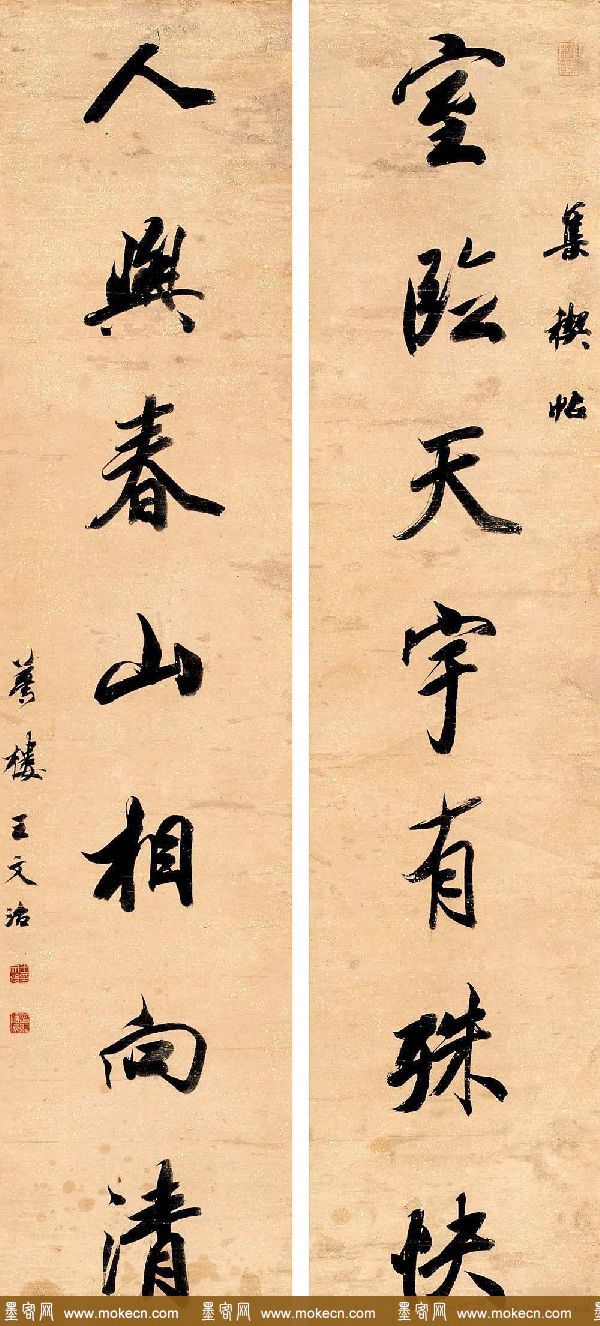 集禊帖
室临天宇有殊快
人與春山相向清
夢樓王文治
墨客网 www.mokecn.com 墨客网 www.mokecn.com 墨客网 www.mokecn.com